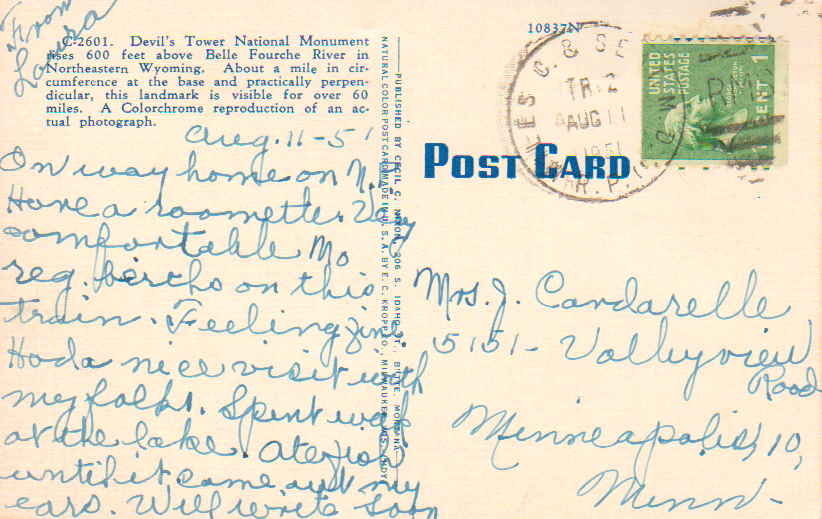 From
Laura
C-2601. Devil's Tower National Monument
rises 600 feet above Belle Fourche River in
Northeastern Wyoming. About a mile in cir-
cumference at the base and practically perpen-
dicular, this landmark is visible for over 60
miles. A Colorchrome reproduction of an ac-
tual photograph.
Aug. 11-51
On way home on N.
Have a roomette. Very
comfortable. No
reg. berths on this
train. Feeling fine.
Had a nice visit with
my folks. Spent week
at the lake. Ate fish
until it came out my
ears. Will write soon
PUBLISHED BY CECIL C. NIXON, 206 S. IDAHO ST., BUTTE, MONTANA
NATURAL COLOR POST CARD MADE IN U. S. A. BY E. C. KROPP CO., MILWAUKEE, WIS.
10837N
POST CARD
TR. 2
AUG 11
1951
R. P. O.
UNITED
STATES
POSTAGE
1 CENT 1
Mrs. J. Cardarelle
5151- Valleyview
Road
Minneapolis, 10,
Minn-